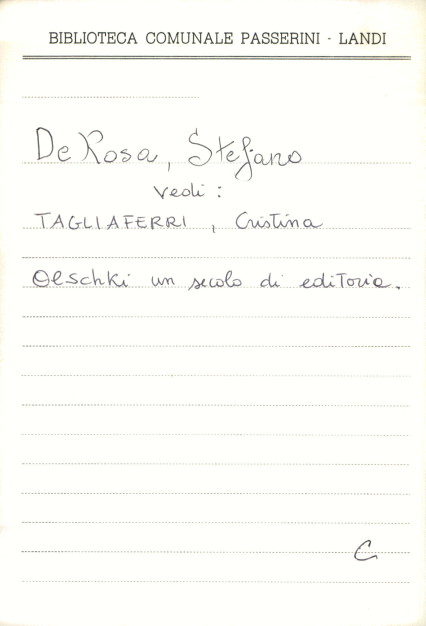 BIBLIOTECA COMUNALE PASSERINI - LANDI
De Rosa, Stefano
Vedi :
TAGLIAFERRI, Cristina
Olschki un secolo di editoria.
C